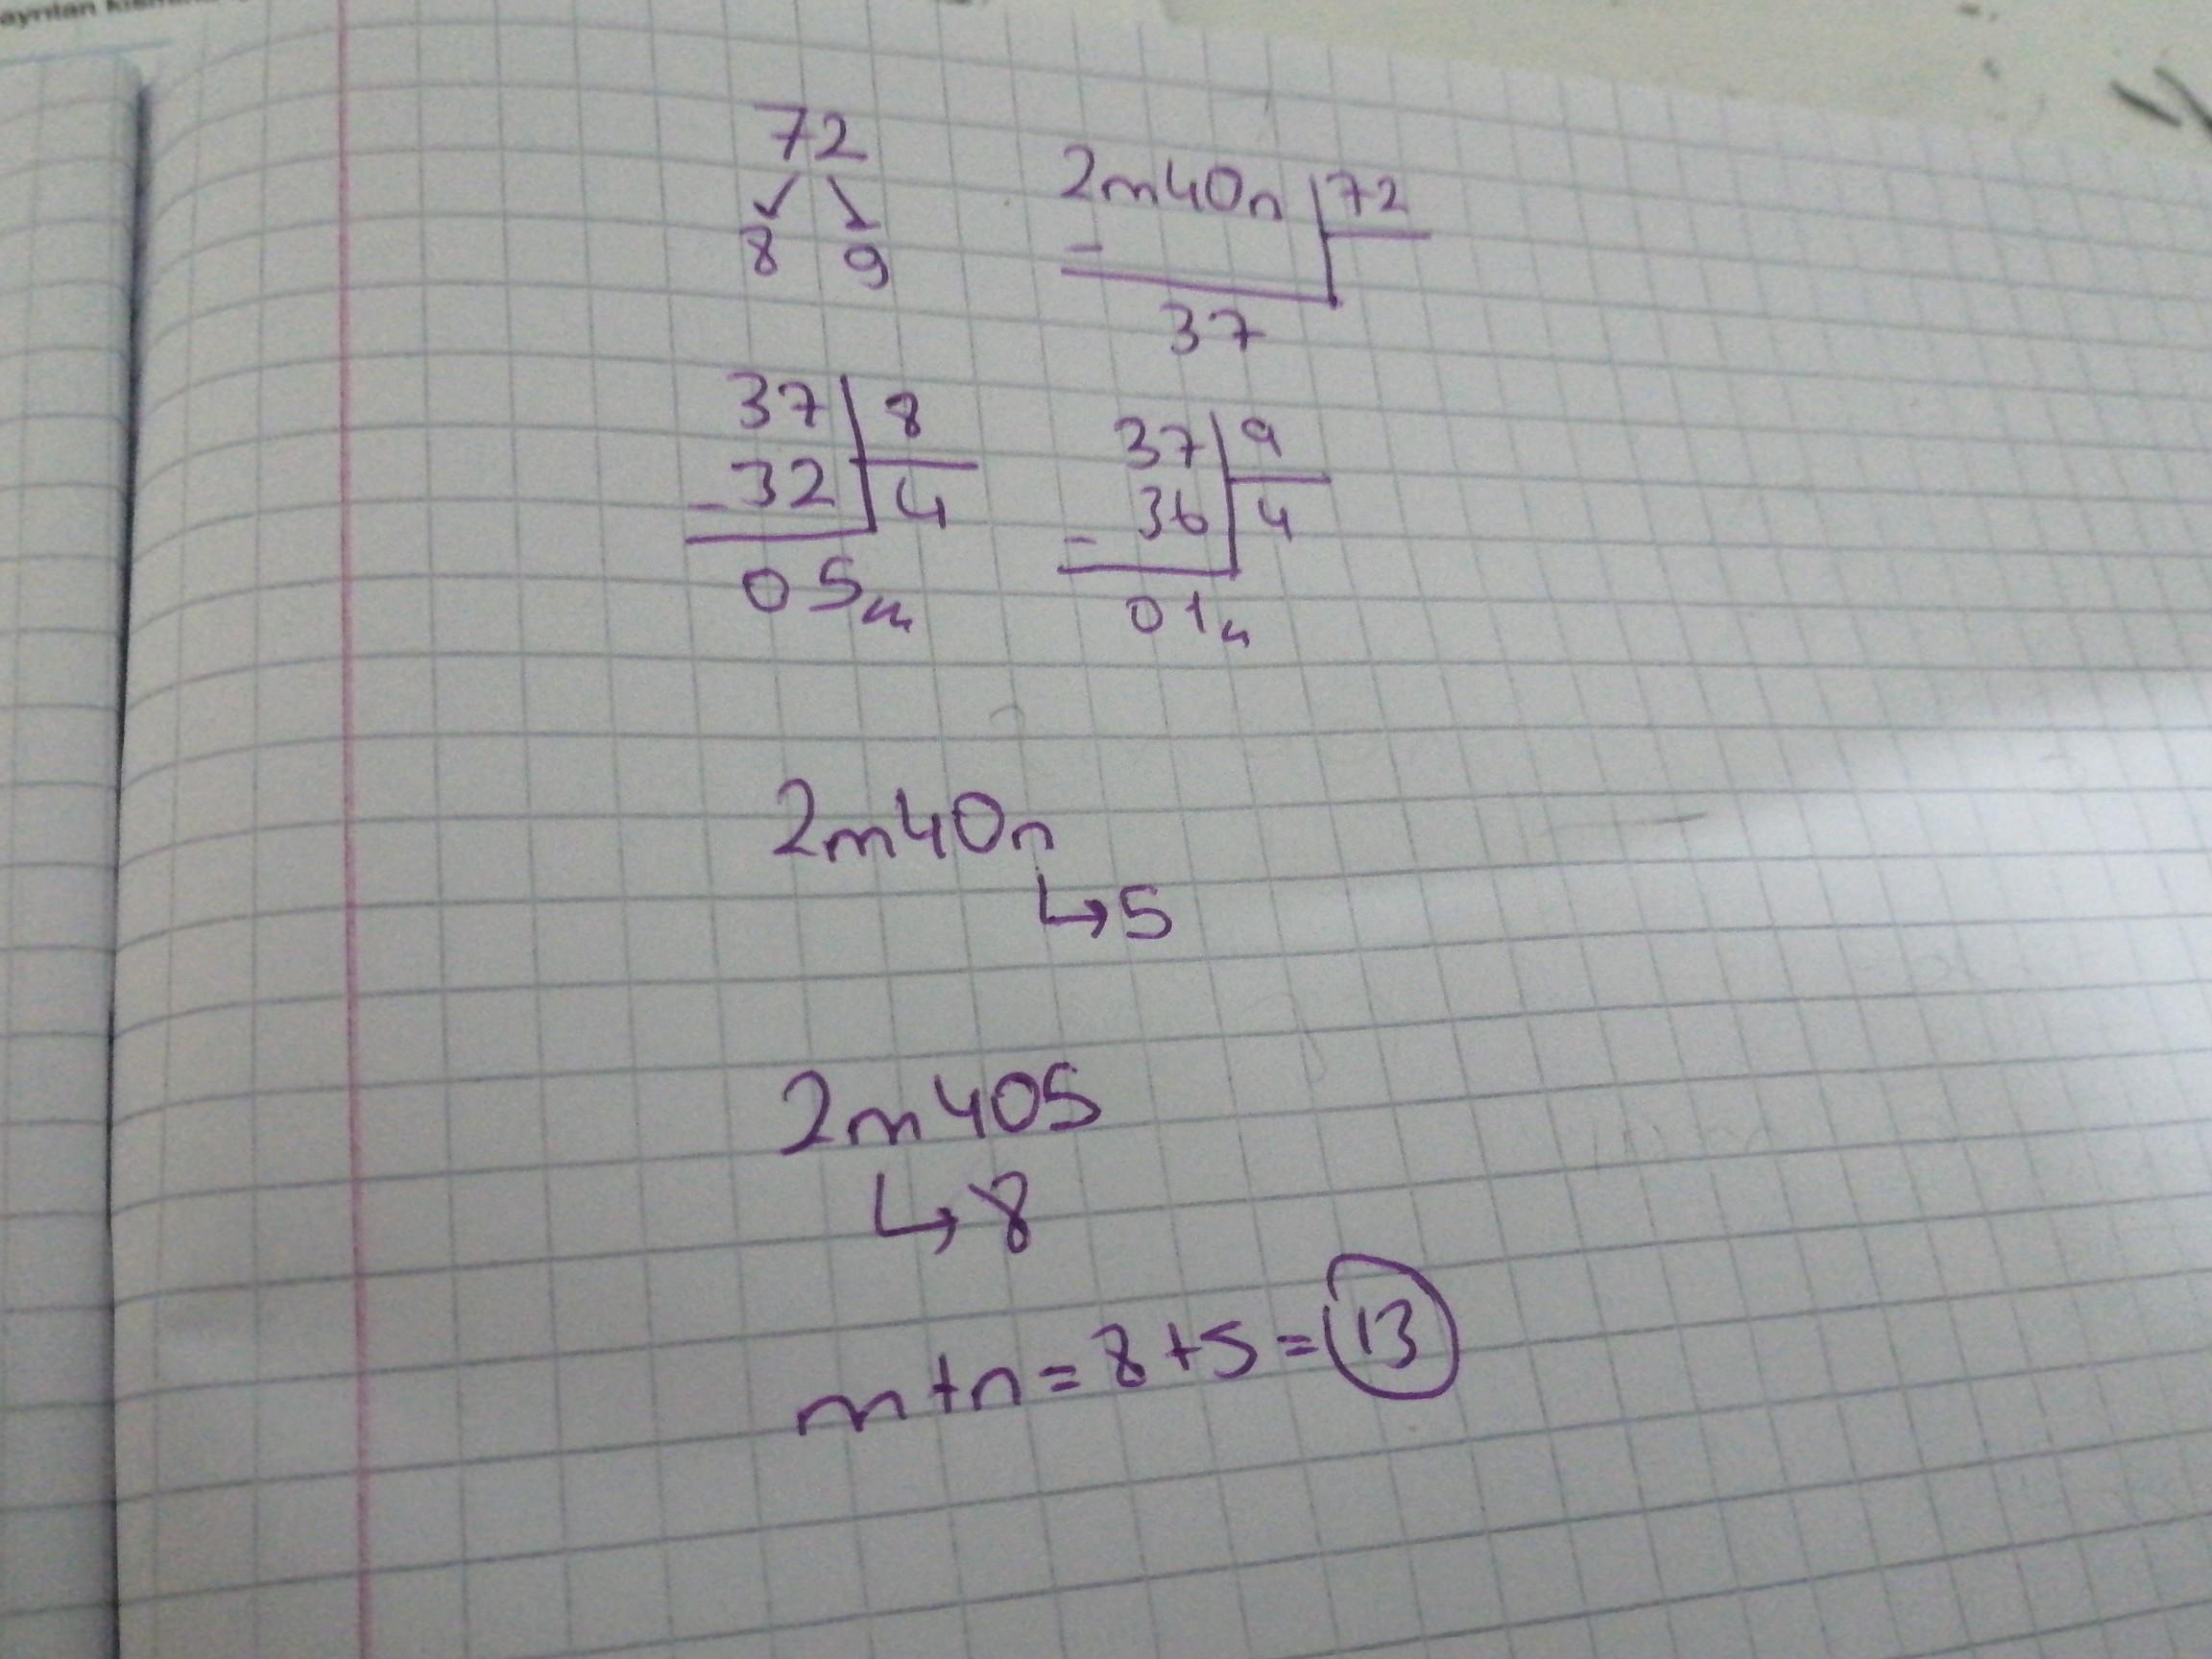 ayrılan
72
8 9
2m40n 72
-
37
37 8
-32 4
05m
37 9
-36 4
01n
2m40n
↳5
2m405
↳8
m+n=8+5=13